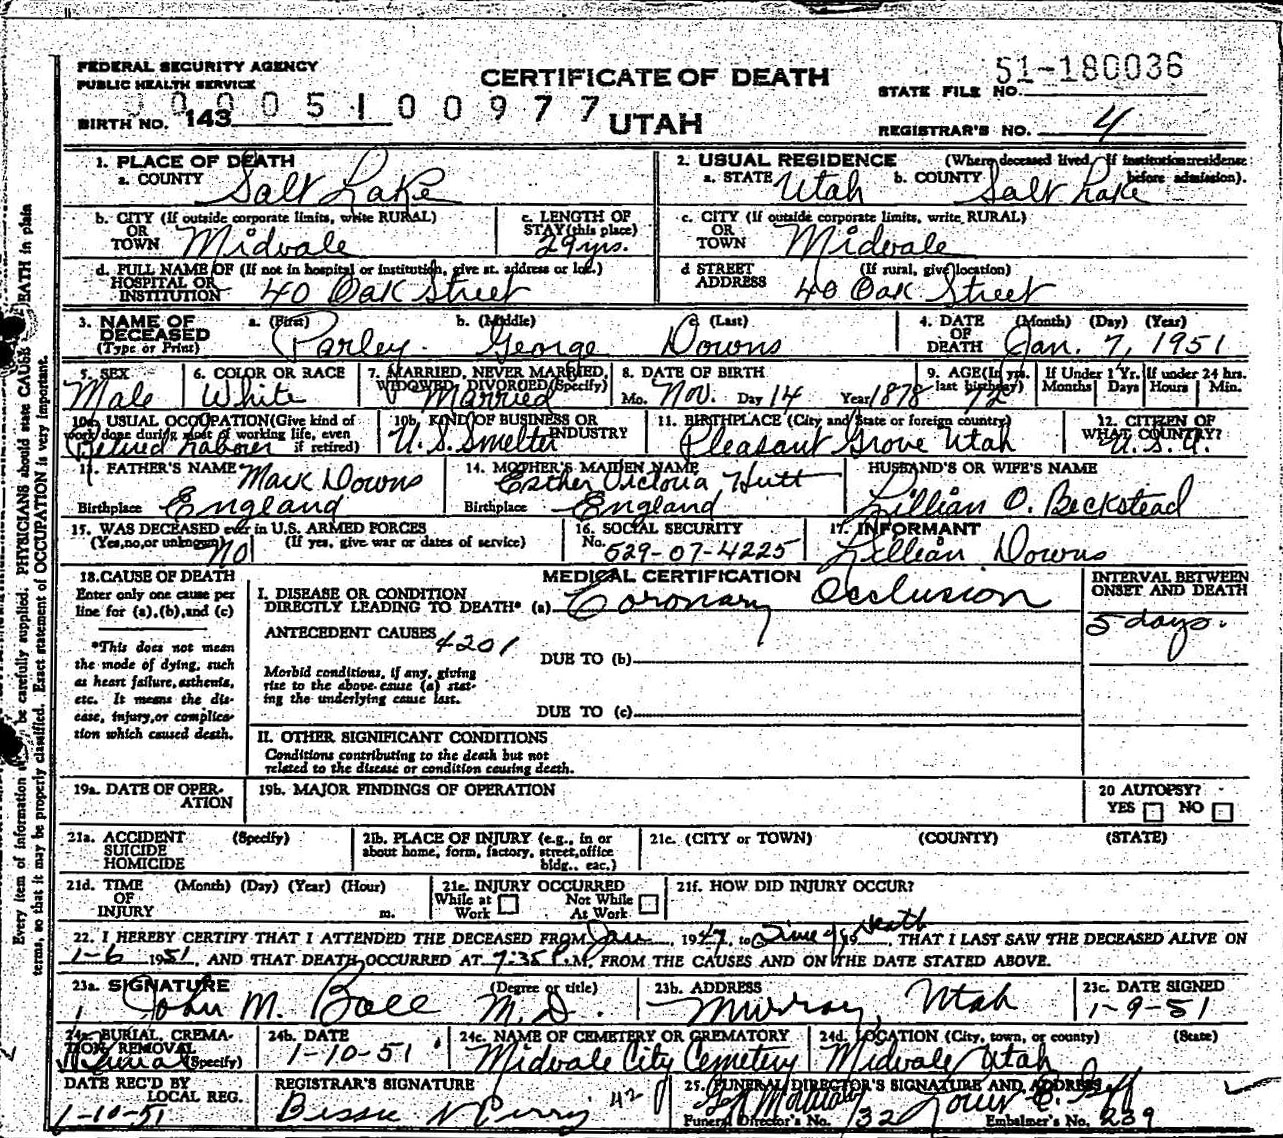 FEDERAL SECURITY AGENCY
PUBLIC HEALTH SERVICE
CERTIFICATE OF DEATH
51-180036
STATE FILE NO.
00051 00977
BIRTH NO. 143
UTAH
REGISTRAR'S NO. 4
1. PLACE OF DEATH
a. COUNTY Salt Lake
2. USUAL RESIDENCE (Where deceased lived. If institution: residence before admission).
a. STATE Utah b. COUNTY Salt Lake
b. CITY (If outside corporate limits, write RURAL) OR TOWN Midvale
c. LENGTH OF STAY (this place) 29 yrs.
c. CITY (If outside corporate limits, write RURAL) OR TOWN Midvale
d. FULL NAME OF (If not in hospital or institution, give st. address or loc.) HOSPITAL OR INSTITUTION 40 Oak Street
d STREET ADDRESS (If rural, give location) 40 Oak Street
3. NAME OF DECEASED (Type or Print)
a. (First) Parley b. (Middle) George c. (Last) Downs
4. DATE OF DEATH (Month) (Day) (Year) Jan. 7, 1951
5. SEX Male
6. COLOR OR RACE White
7. MARRIED, NEVER MARRIED, WIDOWED, DIVORCED (Specify) Married
8. DATE OF BIRTH Mo. Nov. Day 14 Year 1878
9. AGE (In yrs. last birthday) 72
If Under 1 Yr. Months Days
If under 24 hrs. Hours Min.
10a. USUAL OCCUPATION (Give kind of work done during most of working life, even if retired) Retired Laborer
10b. KIND OF BUSINESS OR INDUSTRY U. S. Smelter
11. BIRTHPLACE (City and State or foreign country) Pleasant Grove Utah
12. CITIZEN OF WHAT COUNTRY? U.S.A.
13. FATHER'S NAME Mark Downs
Birthplace England
14. MOTHER'S MAIDEN NAME Esther Victoria Hutt
Birthplace England
HUSBAND'S OR WIFE'S NAME
Lillian O. Beckstead
15. WAS DECEASED ever in U.S. ARMED FORCES
(Yes, no, or unknown) No (If yes, give war or dates of service)
16. SOCIAL SECURITY
No. 529-07-4225
17. INFORMANT
Lillian Downs
18. CAUSE OF DEATH
Enter only one cause per line for (a), (b), and (c)
*This does not mean the mode of dying, such as heart failure, asthenia, etc. It means the disease, injury, or complication which caused death.
MEDICAL CERTIFICATION
I. DISEASE OR CONDITION
DIRECTLY LEADING TO DEATH* (a) Coronary Occlusion
INTERVAL BETWEEN ONSET AND DEATH
5 days.
ANTECEDENT CAUSES 4201
DUE TO (b)
Morbid conditions, if any, giving rise to the above cause (a) stating the underlying cause last.
DUE TO (c)
II. OTHER SIGNIFICANT CONDITIONS
Conditions contributing to the death but not related to the disease or condition causing death.
19a. DATE OF OPERATION
19b. MAJOR FINDINGS OF OPERATION
20 AUTOPSY?
YES NO
21a. ACCIDENT SUICIDE HOMICIDE (Specify)
21b. PLACE OF INJURY (e.g., in or about home, form, factory, street, office bldg., eac.)
21c. (CITY or TOWN) (COUNTY) (STATE)
21d. TIME OF INJURY (Month) (Day) (Year) (Hour) m.
21e. INJURY OCCURRED
While at Work Not While At Work
21f. HOW DID INJURY OCCUR?
22. I HEREBY CERTIFY THAT I ATTENDED THE DECEASED FROM Jan 1947, to Time of Death 19, THAT I LAST SAW THE DECEASED ALIVE ON
1-6 1951, AND THAT DEATH OCCURRED AT 7:35 P.M. FROM THE CAUSES AND ON THE DATE STATED ABOVE.
23a. SIGNATURE (Degree or title)
John M. Bace M.D.
23b. ADDRESS
Murray, Utah
23c. DATE SIGNED
1-9-51
24a. BURIAL, CREMATION, REMOVAL (Specify) Burial
24b. DATE
1-10-51
24c. NAME OF CEMETERY OR CREMATORY
Midvale City Cemetery
24d. LOCATION (City, town, or county) (State)
Midvale Utah
DATE REC'D BY LOCAL REG.
1-10-51
REGISTRAR'S SIGNATURE
Bessie N Perry 42
25. FUNERAL DIRECTOR'S SIGNATURE AND ADDRESS
Goff Mortuary Louis E. Goff
Funeral Director's No. 132 Embalmer's No. 239
Every item of information be carefully supplied. PHYSICIANS should state CAUSE DEATH in plain
terms, so that it may be properly classified. Exact statement of OCCUPATION is very important.